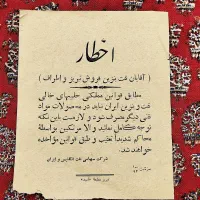 اخطار
( آقایان نفت بنزین فروش تبریز و اطراف )
مطابق قوانین مملکتی حلبهای خالی
نفت و بنزین ایران نباید در محصولات مواد
دیگر مصرف شود و لازمست باین نکته
توجه کامل نمائید والا مرتکبین بواسطهٔ
محاکم شدیداً تعقیب و طبق قوانین مؤاخذه
خواهند شد.
شرکت سهامی نفت انگلیس و ایران